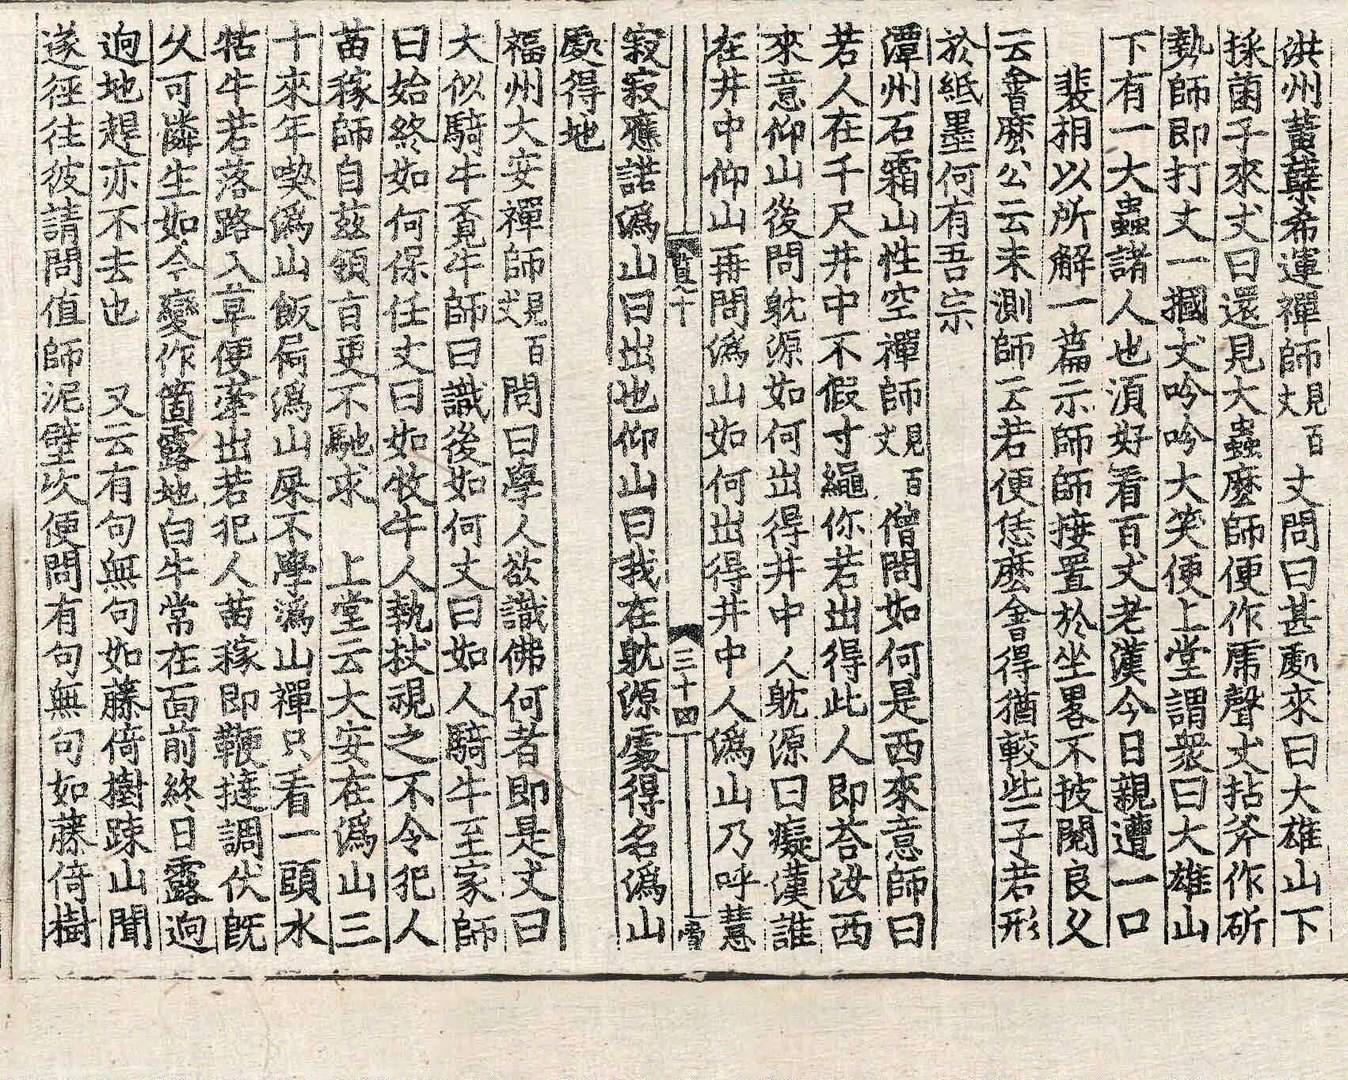 洪州黃蘗希運禪師見百丈丈問曰甚處來曰大雄山下
採菌子來丈曰還見大蟲麽師便作虎聲丈拈斧作斫
勢師即打丈一摑丈吟吟大笑便上堂謂衆曰大雄山
下有一大蟲諸人也須好看百丈老漢今日親遭一口
裴相以所解一篇示師師接置於坐畧不披閱良久
云會麽公云未測師云若便恁麽會得猶較些子若形
於紙墨何有吾宗
潭州石霜山性空禪師見百丈僧問如何是西來意師曰
若人在千尺井中不假寸繩你若出得此人即荅汝西
來意仰山後問躭源如何出得井中人躭源曰癡漢誰
在井中仰山再問溈山如何出得井中人溈山乃呼慧
三十四
寂寂應諾溈山曰出也仰山曰我在躭源處得名溈山
處得地
福州大安禪師見百丈問曰學人欲識佛何者即是丈曰
大似騎牛覔牛師曰識後如何丈曰如人騎牛至家師
曰始終如何保任丈曰如牧牛人執杖視之不令犯人
苗稼師自玆領旨更不馳求 上堂云大安在溈山三
十來年喫溈山飯屙溈山屎不學溈山禪只看一頭水
牯牛若落路入草便牽出若犯人苗稼即鞭撻調伏旣
久可憐生如今變作箇露地白牛常在面前終日露逈
逈地趕亦不去也 又云有句無句如藤倚樹踈山聞
遂徑往彼請問值師泥壁次便問有句無句如藤倚樹